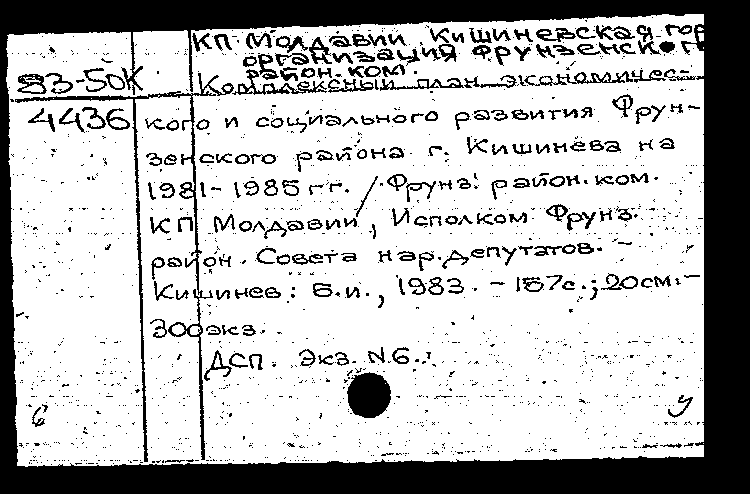 КП Молдавии Кишиневская гор
организация Фрунзенск
район. ком.
83-50К Комплексный план экономичес-
4436 кого и социального развития Фрун-
зенского района г. Кишинева на
1981-1985 гг. / Фрунз. район. ком.
КП Молдавии, Исполком Фрунз.
район. Совета нар. депутатов. -
Кишинев: Б.и., 1983. - 157с.; 20см. -
300экз.
ДСП. Экз. N6.
6 у